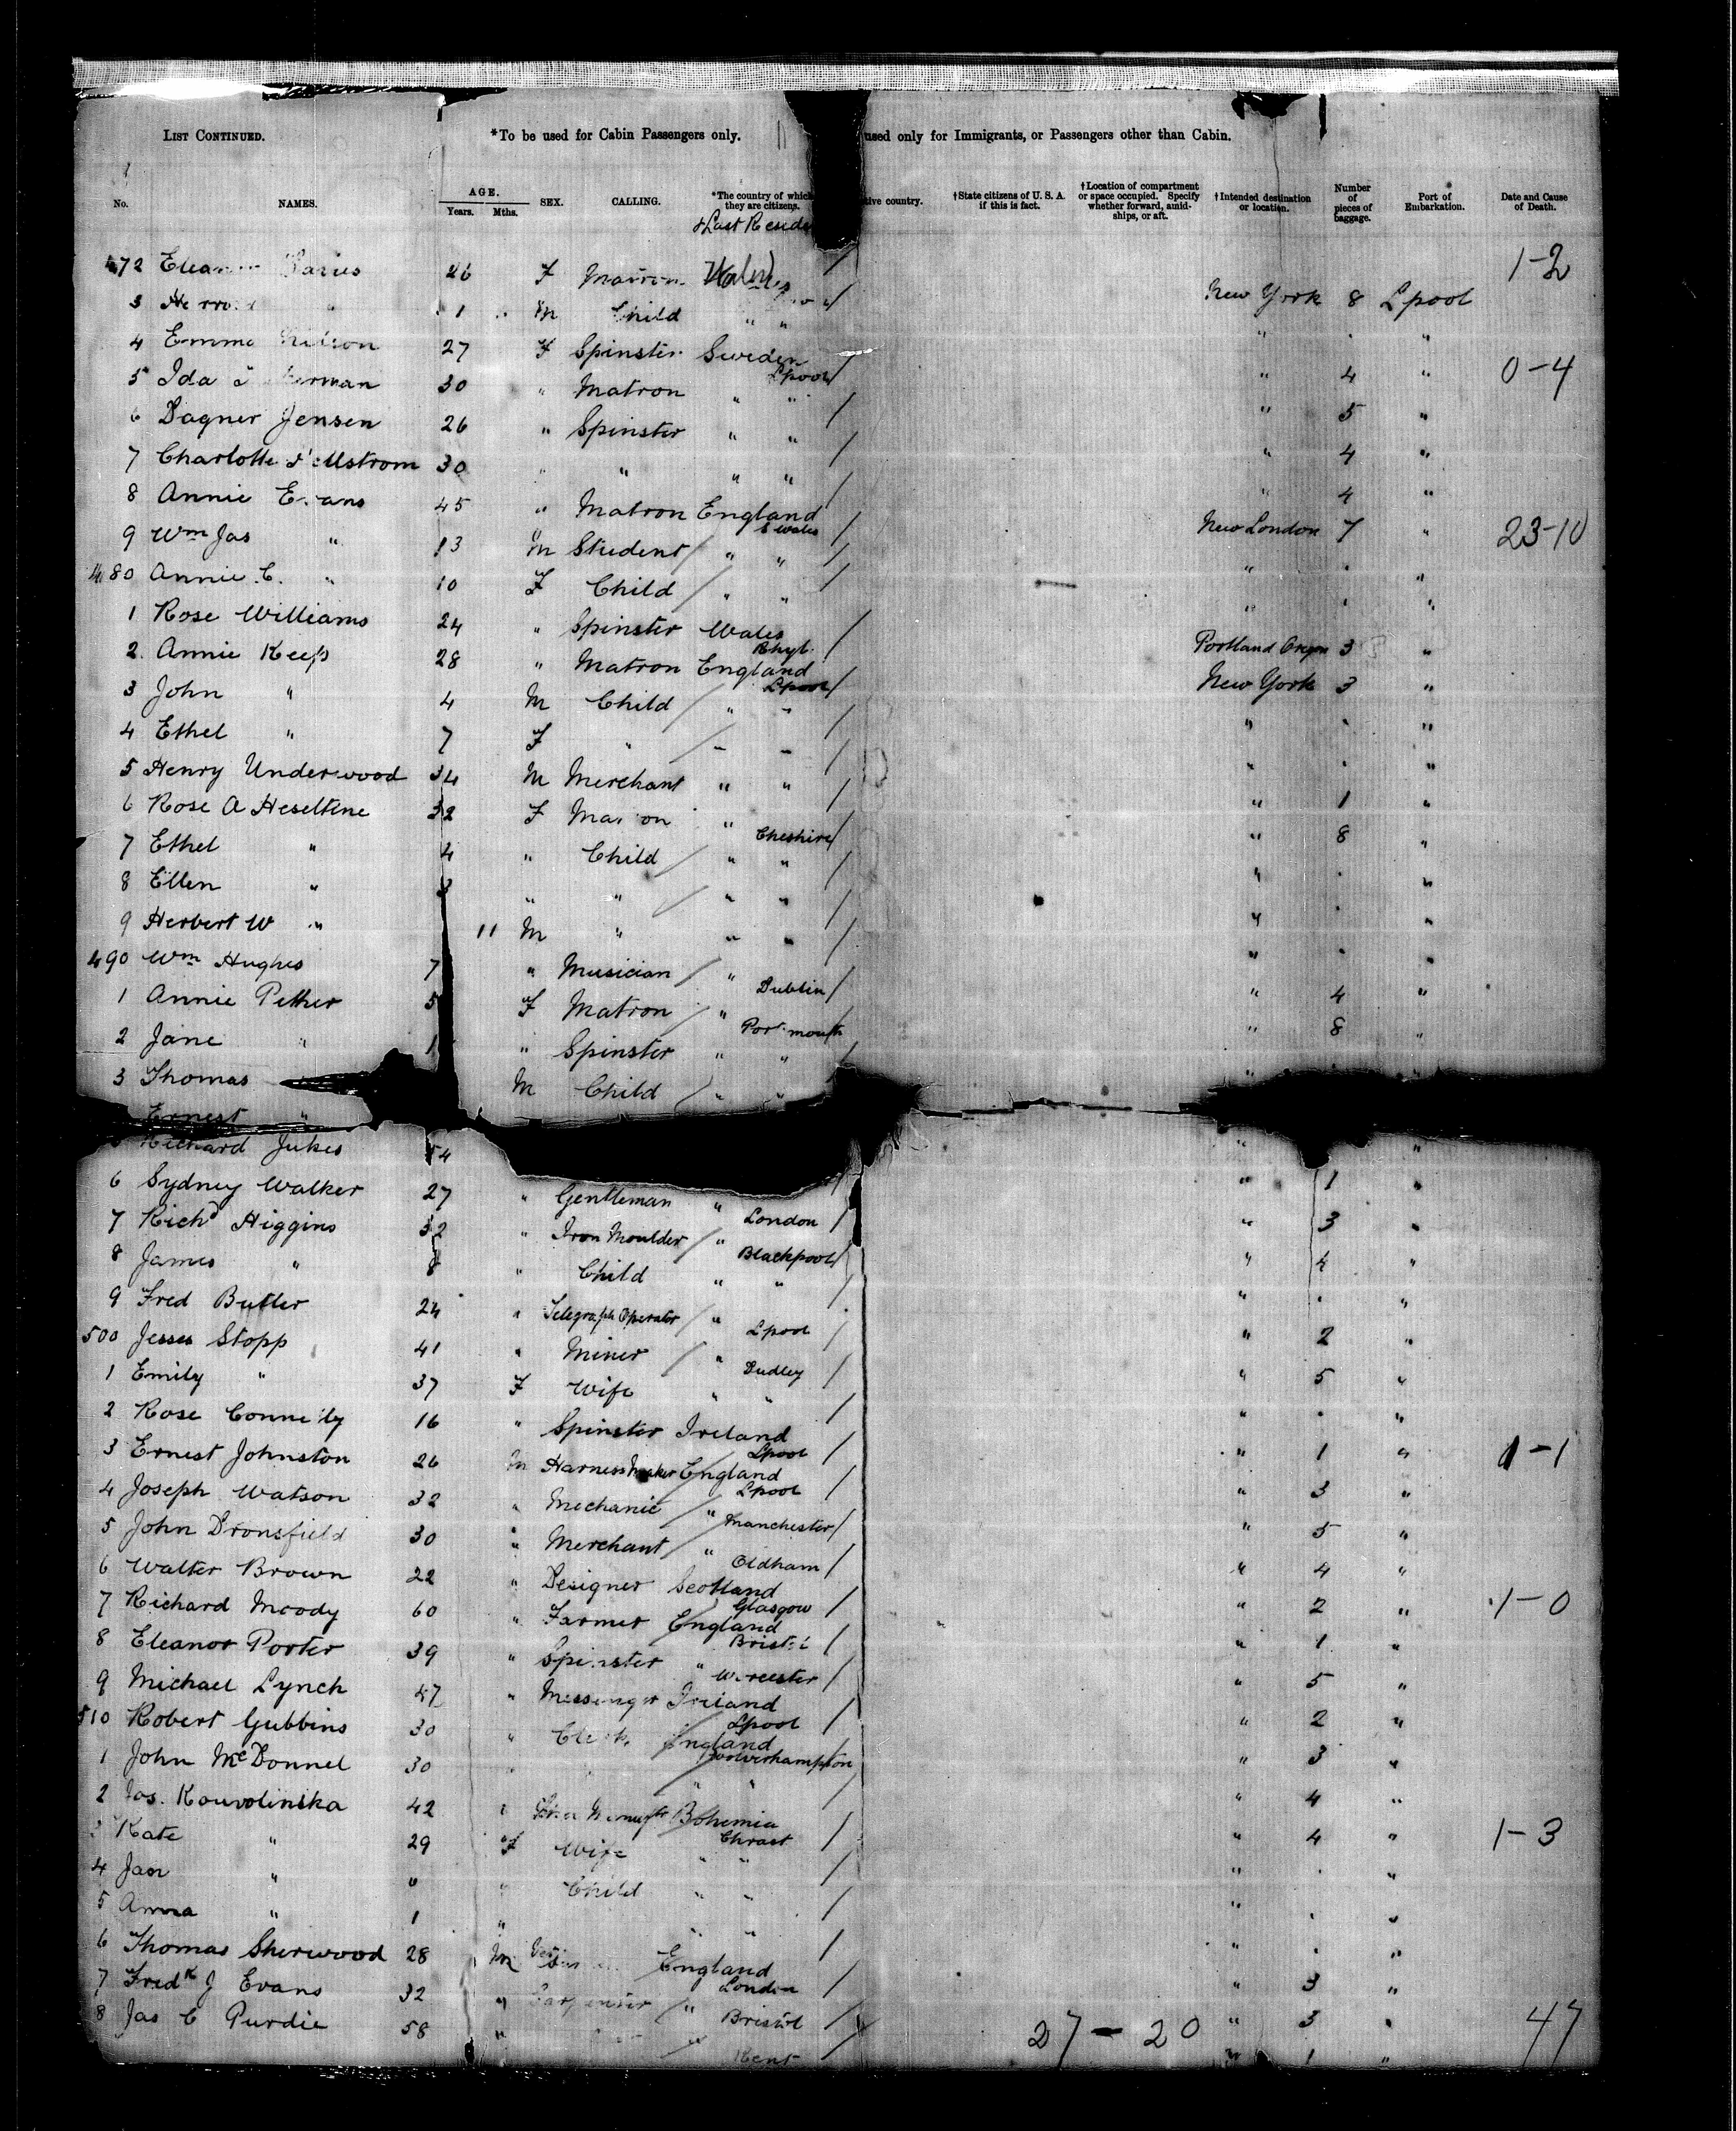 LIST CONTINUED.
*To be used for Cabin Passengers only.
used only for Immigrants, or Passengers other than Cabin.
No. NAMES. AGE. Years. Mths. SEX. CALLING. *The country of which they are citizens. tive country. †State citizens of U. S. A. if this is fact. †Location of compartment or space occupied. Specify whether forward, amidships, or aft. †Intended destination or location. Number of pieces of baggage. Port of Embarkation. Date and Cause of Death.
& Last Reside
472 26 F Matron Wales New York 8 Lpool 1-2
3 1 M Child " " " . "
4 Emma 27 F Spinster Sweden Lpool " 4 " 0-4
5 Ida 30 " Matron " " " 5 "
6 Dagner Jensen 26 " Spinster " " " 4 "
7 Charlotte 30 " " " " " 4 "
8 Annie Evans 45 " Matron England S Wales New London 7 " 23-10
9 Wm Jas " 13 M Student " " " . "
480 Annie C. " 10 F Child " " " . "
1 Rose Williams 24 " Spinster Wales Rhyl. Portland Oregon 3 "
2 Annie Keep 28 " Matron England Lpool New York 3 "
3 John " 4 M Child " " " . "
4 Ethel " 7 F " " " " . "
5 Henry Underwood 34 M Merchant " " " 1 "
6 Rose A Heseltine 32 F Matron " Cheshire " 8 "
7 Ethel " 4 " Child " " " . "
8 Ellen " 3 " " " " " . "
9 Herbert W " 11 M " " " " . "
490 Wm Hughes 7 " Musician " Dublin " 4 "
1 Annie Pether 5 F Matron " Portsmouth " 8 "
2 Jane " 1 " Spinster " " "
3 Thomas M Child " "
Ernest "
Richard Jukes 54 " 1 "
6 Sydney Walker 27 " Gentleman " London " 3 "
7 Richd Higgins 32 " Iron Moulder " Blackpool " 4 "
8 James " 8 " Child " " " . "
9 Fred Butler 24 " Telegraph Operator " Lpool " 2 "
500 Jesse Stopp 41 " Miner " Dudley " 5 "
1 Emily " 37 F Wife " " " . "
2 Rose Connelly 16 " Spinster Ireland Lpool " 1 " 1-1
3 Ernest Johnston 26 M Harness Maker England Lpool " 3 "
4 Joseph Watson 32 " Mechanic " Manchester " 5 "
5 John Dronsfield 30 " Merchant " Oldham " 4 "
6 Walter Brown 22 " Designer Scotland Glasgow " 2 " 1-0
7 Richard Moody 60 " Farmer England Bristol " 1 "
8 Eleanor Porter 39 " Spinster " Worcester " 5 "
9 Michael Lynch 47 " Messenger Ireland Lpool " 2 "
510 Robert Gubbins 30 " Clerk England Wolverhampton " 3 "
1 John McDonnel 30 " " " " 4 "
2 Jos. Kouvolinska 42 " Bohemia Chrast " 4 " 1-3
3 Kate " 29 F Wife " " " . "
4 Jan " " Child " " " . "
5 Anna " 1 " " " " . "
6 Thomas Sherwood 28 M England London " 3 "
7 Fredk J Evans 32 " Carpenter " Bristol " 3 "
8 Jas C Purdie 58 " " Kent " 1 "
27-20
47